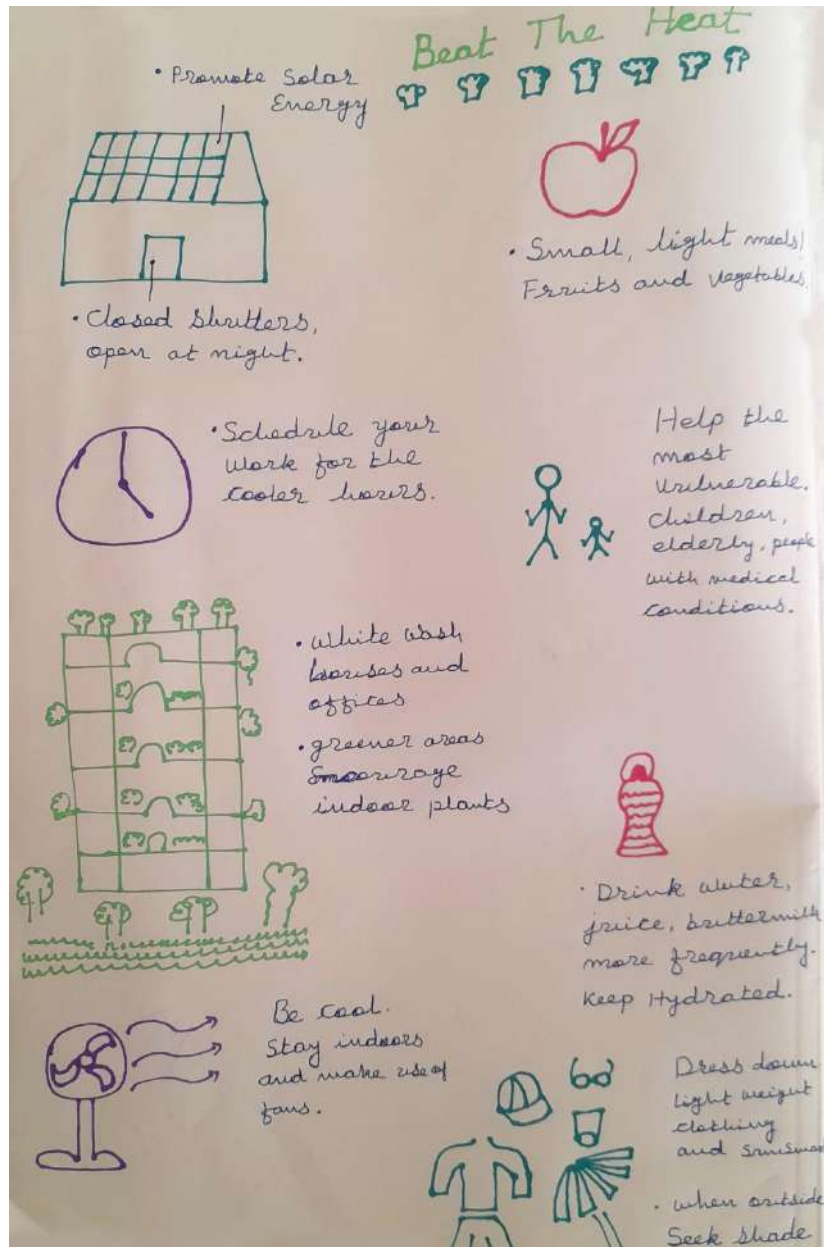 Beat The Heat
• Promote Solar
Energy
• Closed Shutters,
open at night.
• Small, light meals!
Fruits and vegetables.
• Schedule your
work for the
cooler hours.
Help the
most
vulnerable.
children,
elderly, people
with medical
conditions.
• White wash
houses and
offices
• greener areas
indoor plants
• Drink water,
juice, buttermilk
more frequently.
Keep Hydrated.
Be cool.
Stay indoors
and make use of
fans.
Dress down
light weight
clothing
and
• when outside
Seek shade